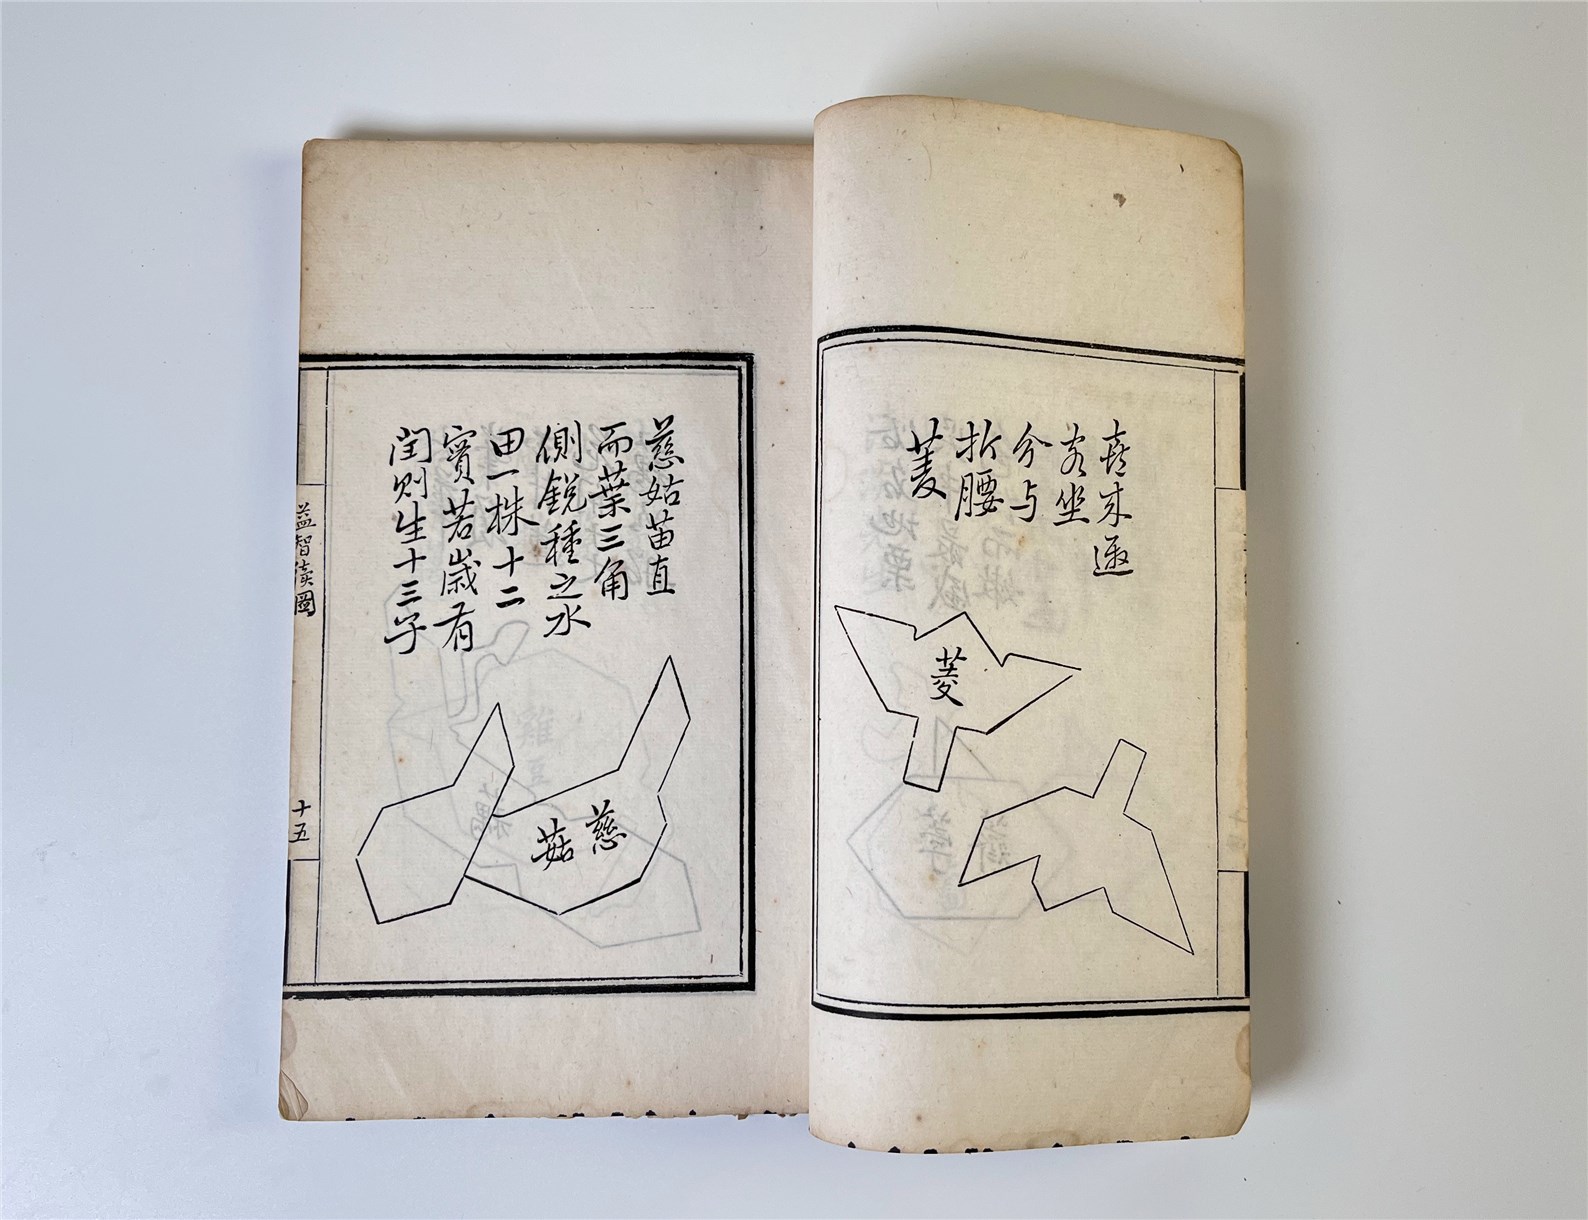 喜来邀
客坐
分与
折腰
菱
菱
慈姑苗直
而葉三角
側銳種之水
田一株十二
實若歲有
闰则生十三子
慈
菇
益智续圖
十五